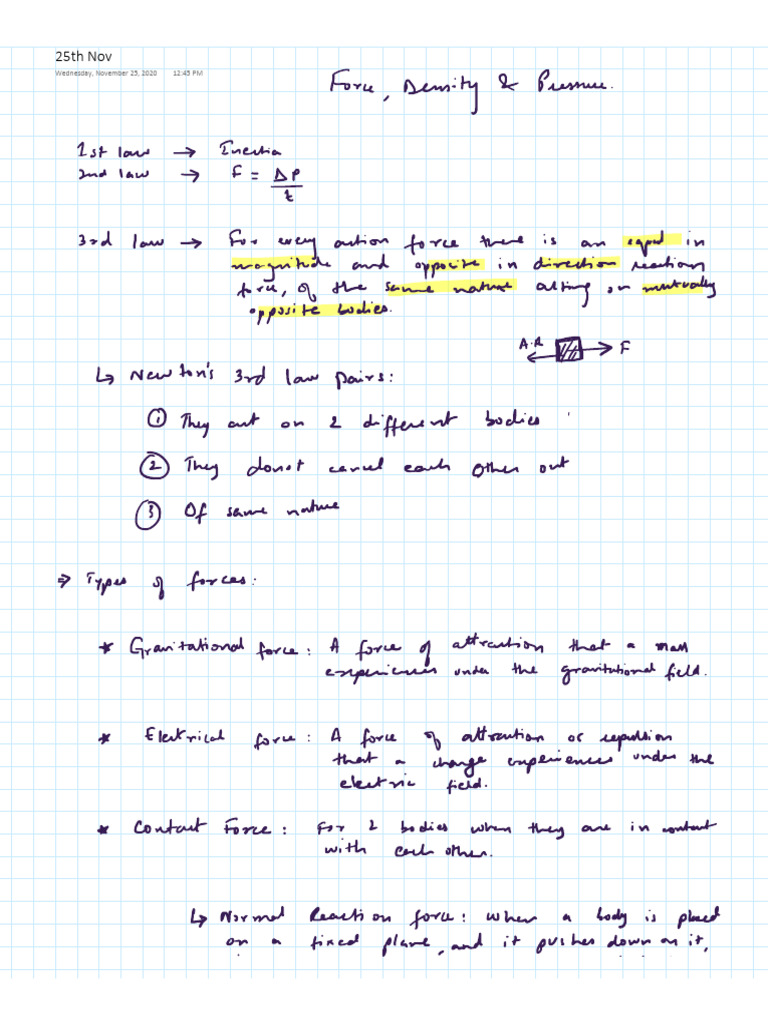 25th Nov
Wednesday, November 25, 2020 12:45 PM
Force, Density & Pressure.
1st law → Inertia
2nd law → F = ΔP
t
3rd law → For every action force there is an equal in
magnitude and opposite in direction reaction
force, of the same nature acting on mutually
opposite bodies.
A.R F
↳ Newton's 3rd law pairs:
① They act on 2 different bodies
② They donot cancel each other out
③ Of same nature
⇒ Types of forces:
* Gravitational force: A force of attraction that a mass
experiences under the gravitational field.
* Electrical force: A force of attraction or repulsion
that a charge experiences under the
electric field.
* Contact Force: For 2 bodies when they are in contact
with each other.
↳ Normal Reaction force: when a body is placed
on a fixed plane, and it pushes down on it,